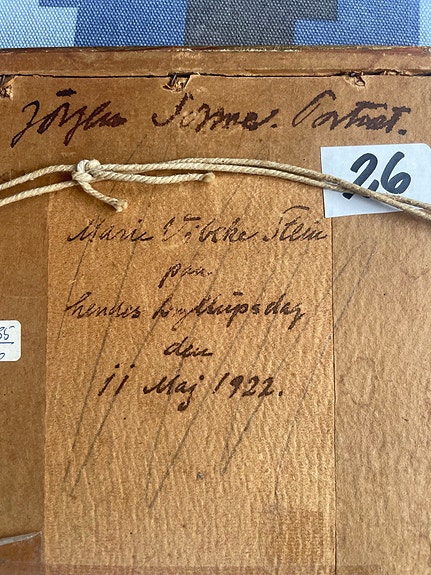 Jörgen Sonne. Portræt.
26
Marie Vibeke Stein
paa
hendes bryllupsdag
den
11 Maj 1922.